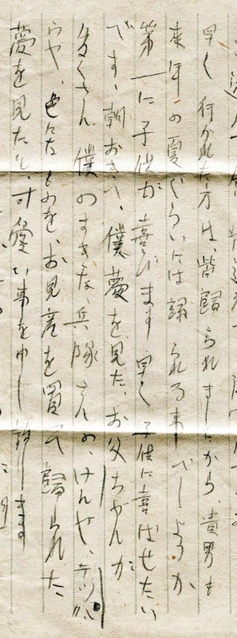 早く行かれた方は、皆歸られましたから、貴男も
来年の夏ぐらいには歸られる事でしょうか
第一に子供が喜びます 早く子供に喜ばせたい
です、朝おきて、僕夢を見た、お父ちゃんが
たくさん、僕のすきな、兵隊さんの、けんや、テツパ
うや、色々なものを、お見産を買て歸られた
夢を見たと、可愛い事を申し誂します